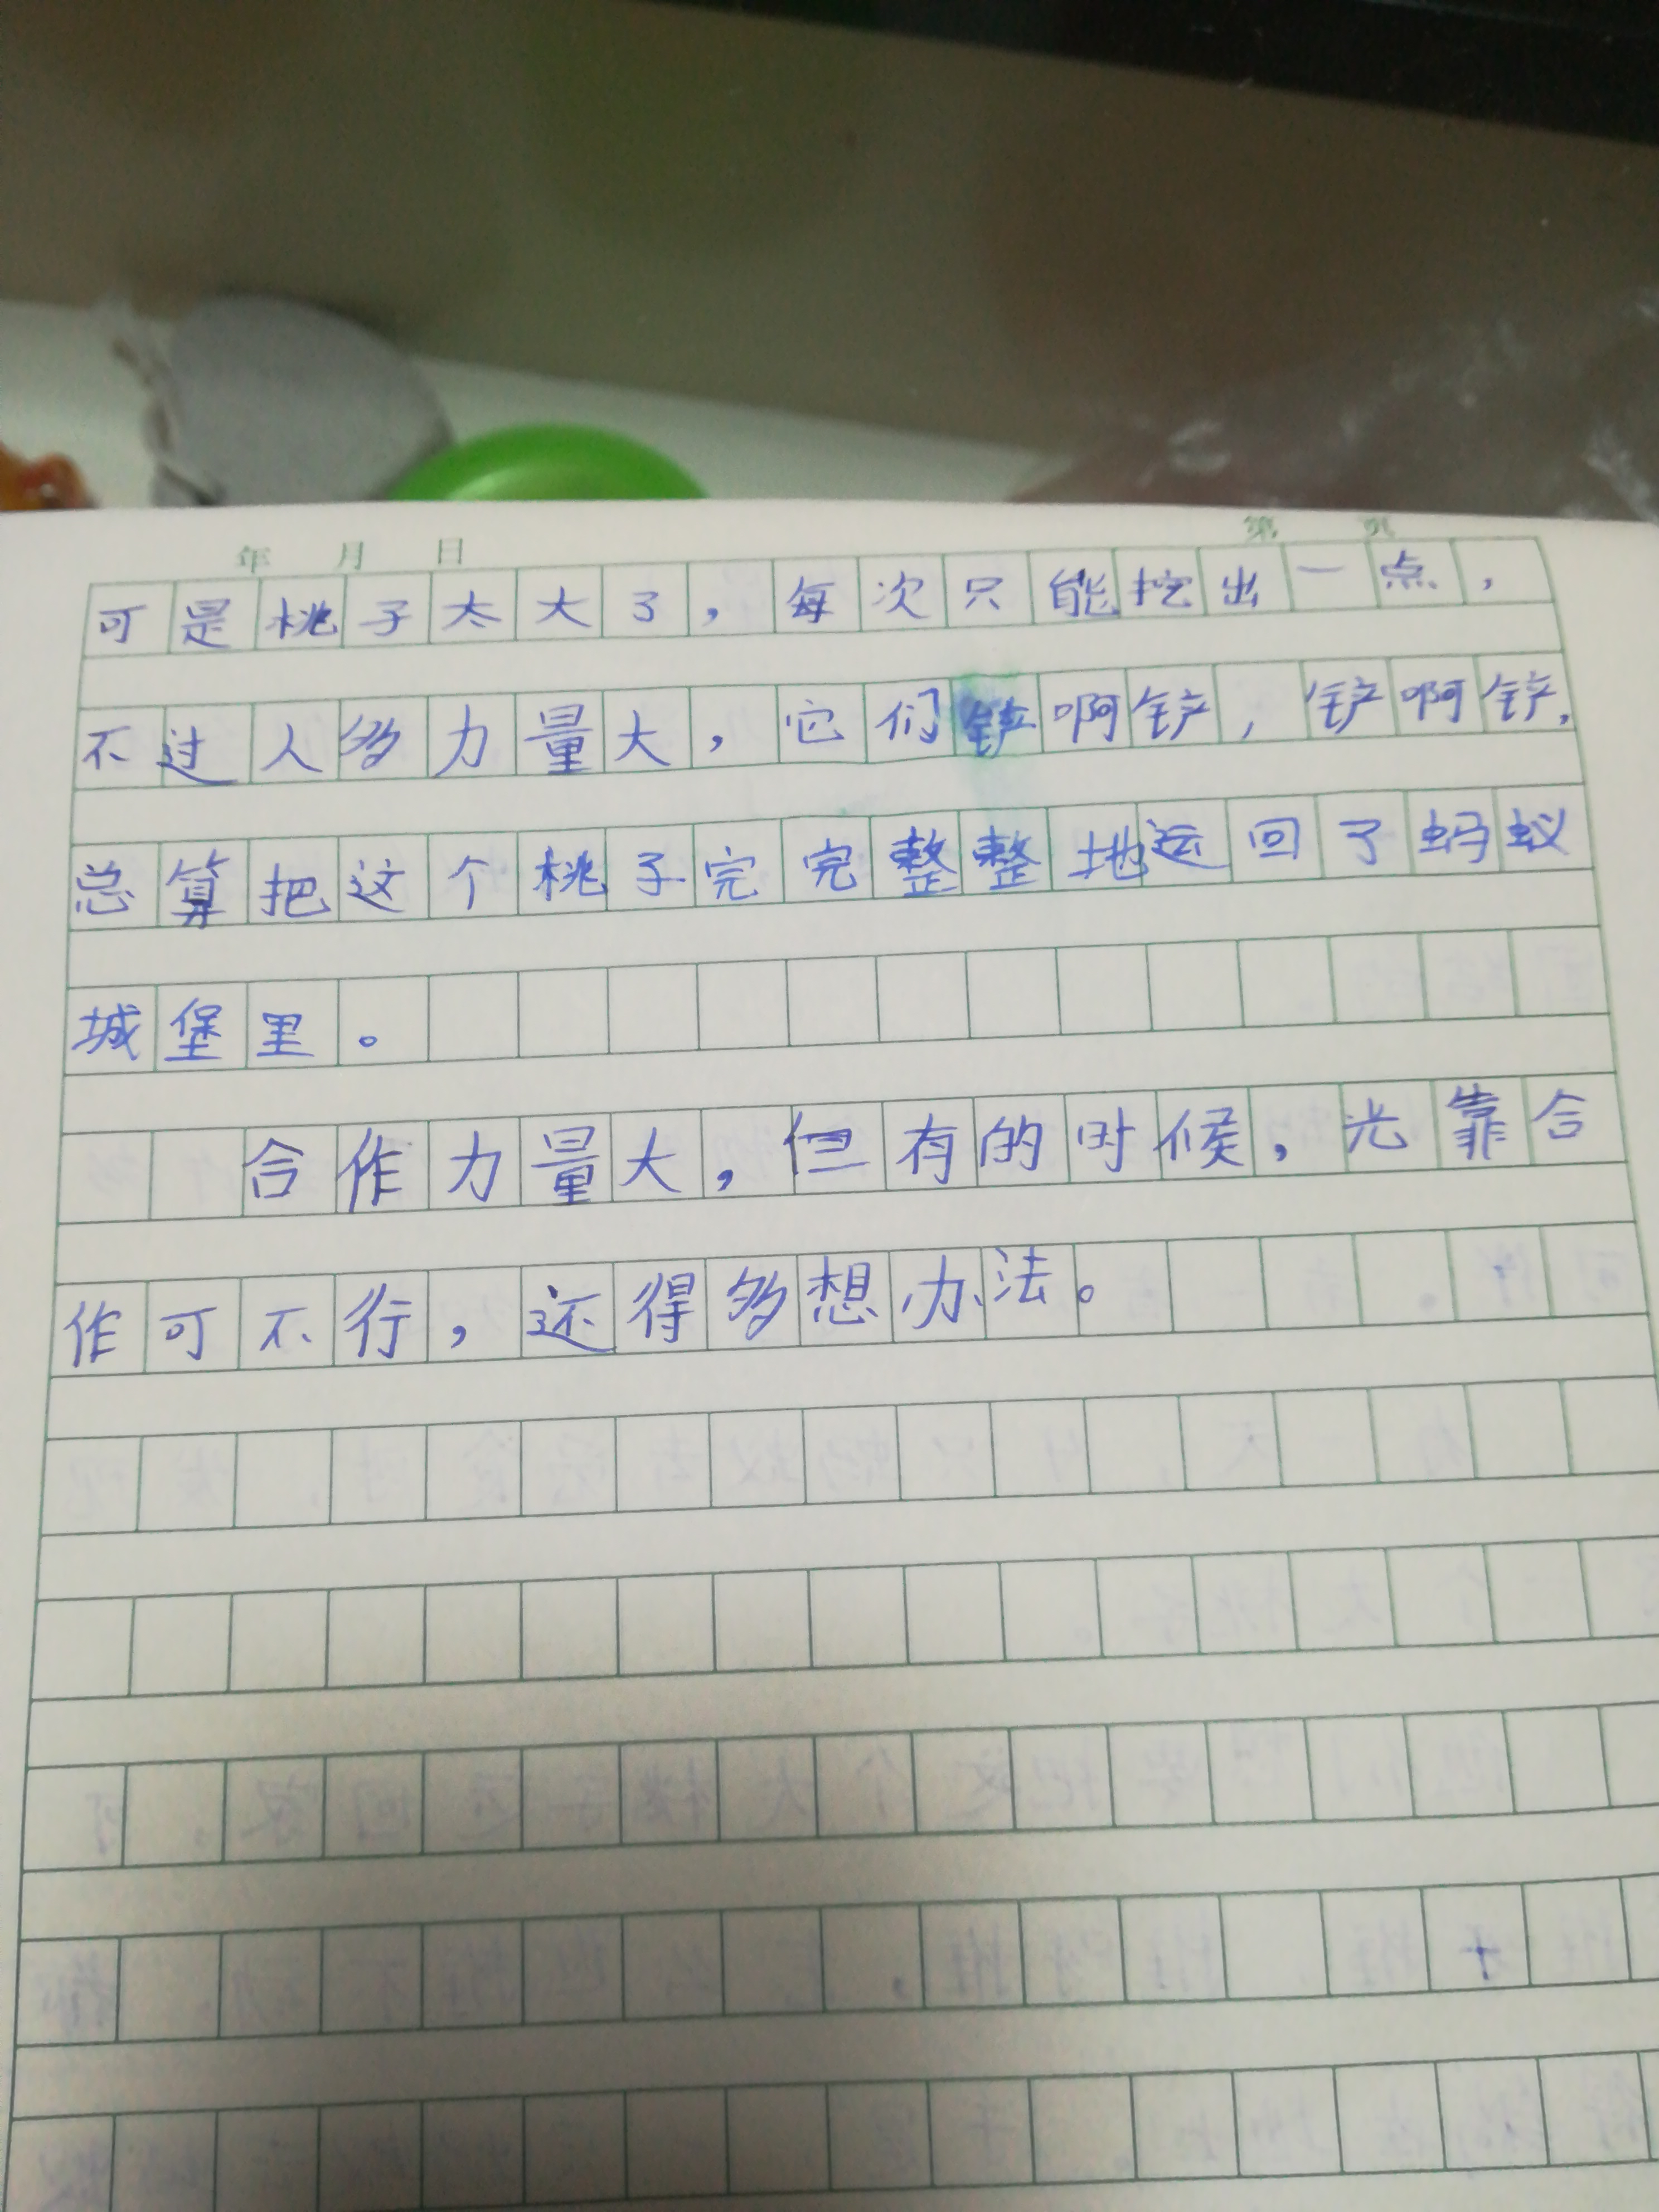 年 月 日 第 页
可是桃子太大了，每次只能挖出一点，
不过人多力量大，它们铲啊铲，铲啊铲，
总算把这个桃子完完整整地运回了蚂蚁
城堡里。
合作力量大，但有的时候，光靠合
作可不行，还得多想办法。